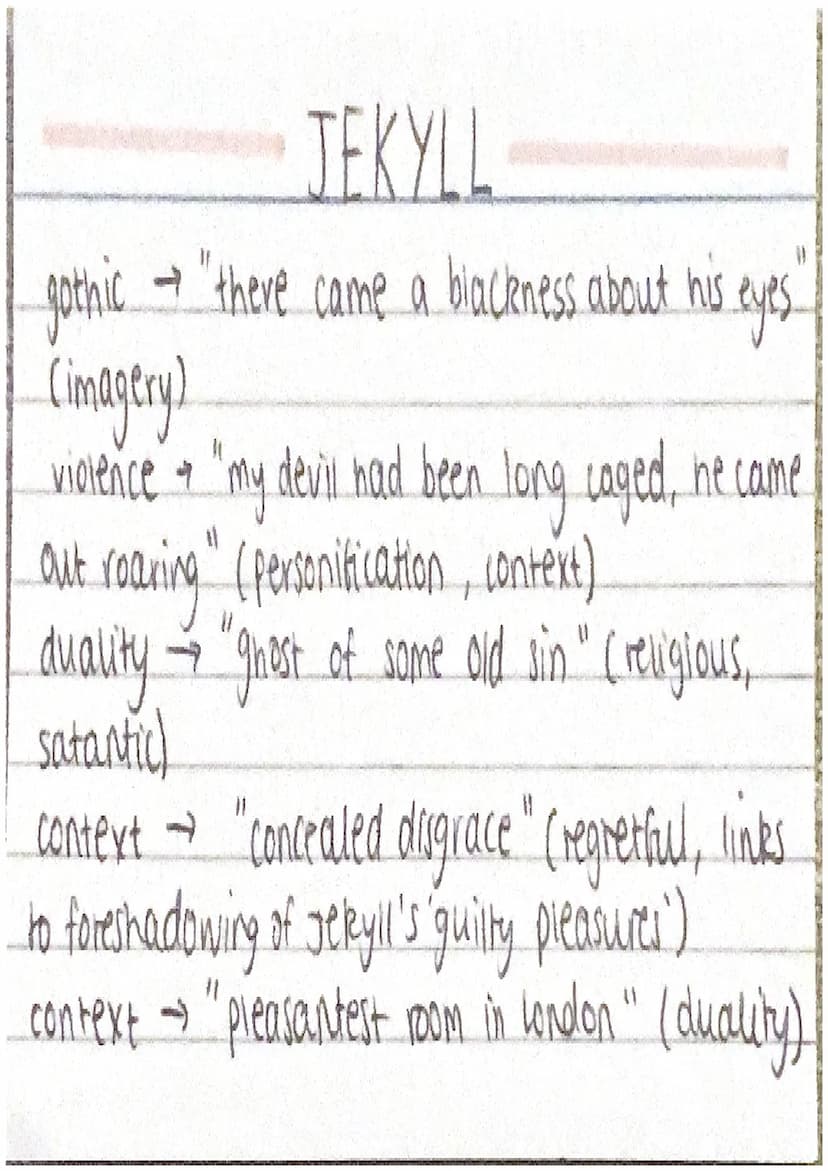 JEKYLL
gothic → "there came a blackness about his eyes"
(imagery)
violence → "my devil had been long caged, he came
out roaring" (personification, context)
duality → "ghost of some old sin" (religious,
satantic)
context → "concealed disgrace" (regretful, links
to foreshadowing of Jekyll's 'guilty pleasures')
context → "pleasantest room in london" (duality)